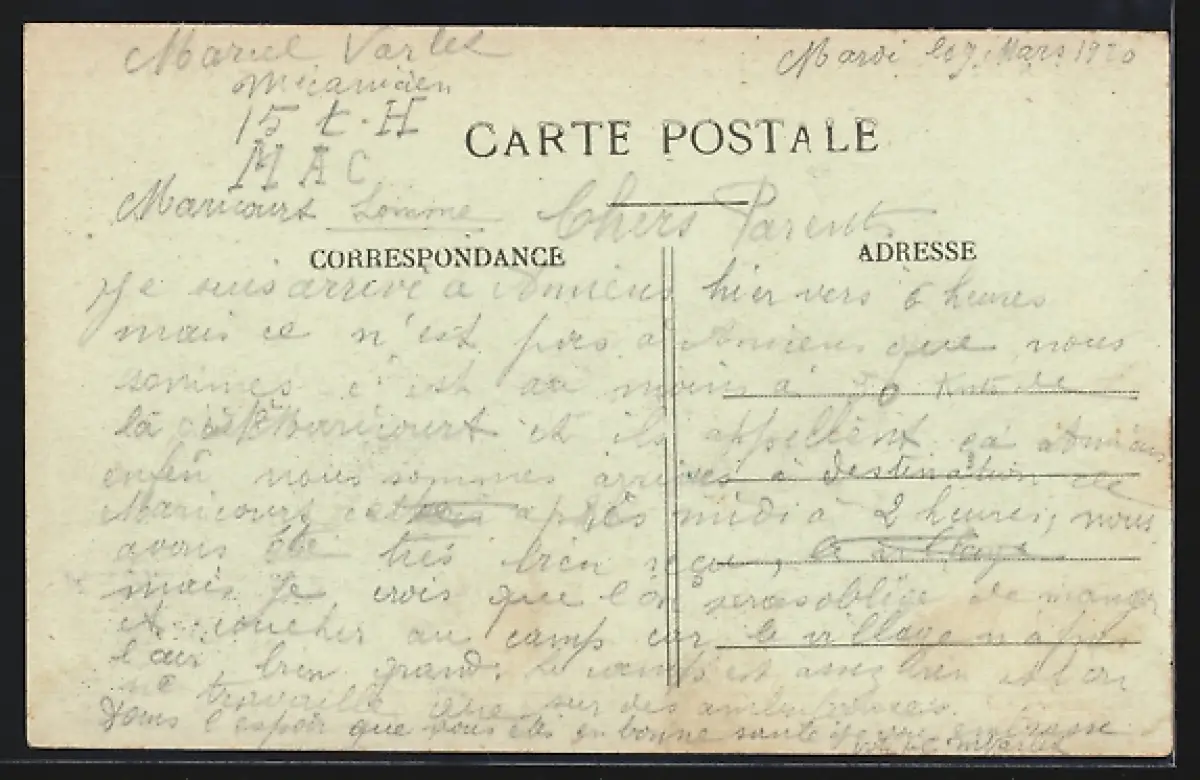 Marcel Varlet
Mardi le 7 Mars 1920
Mécanicien
15 t. H
CARTE POSTALE
M A C
Maricourt Somme
Chers Parents
CORRESPONDANCE
ADRESSE
Je suis arrivé à Amiens hier vers 6 heures
mais ce n'est pas à Amiens que nous
sommes c'est au moins à Kmts de
là Maricourt et ils appellent ça Amiens
enfin nous sommes arrivés à destination de
Maricourt cet après midi à 2 heures, nous
avons été très bien reçu, le village
mais je crois que l'on seras obligé de manger
et coucher au camp car le village n'a pas
l'air bien grand. Le camp est assez bien et on
ne travaille que sur des ambulances.
Dans l'espoir que vous êtes en bonne santé je vous embrasse